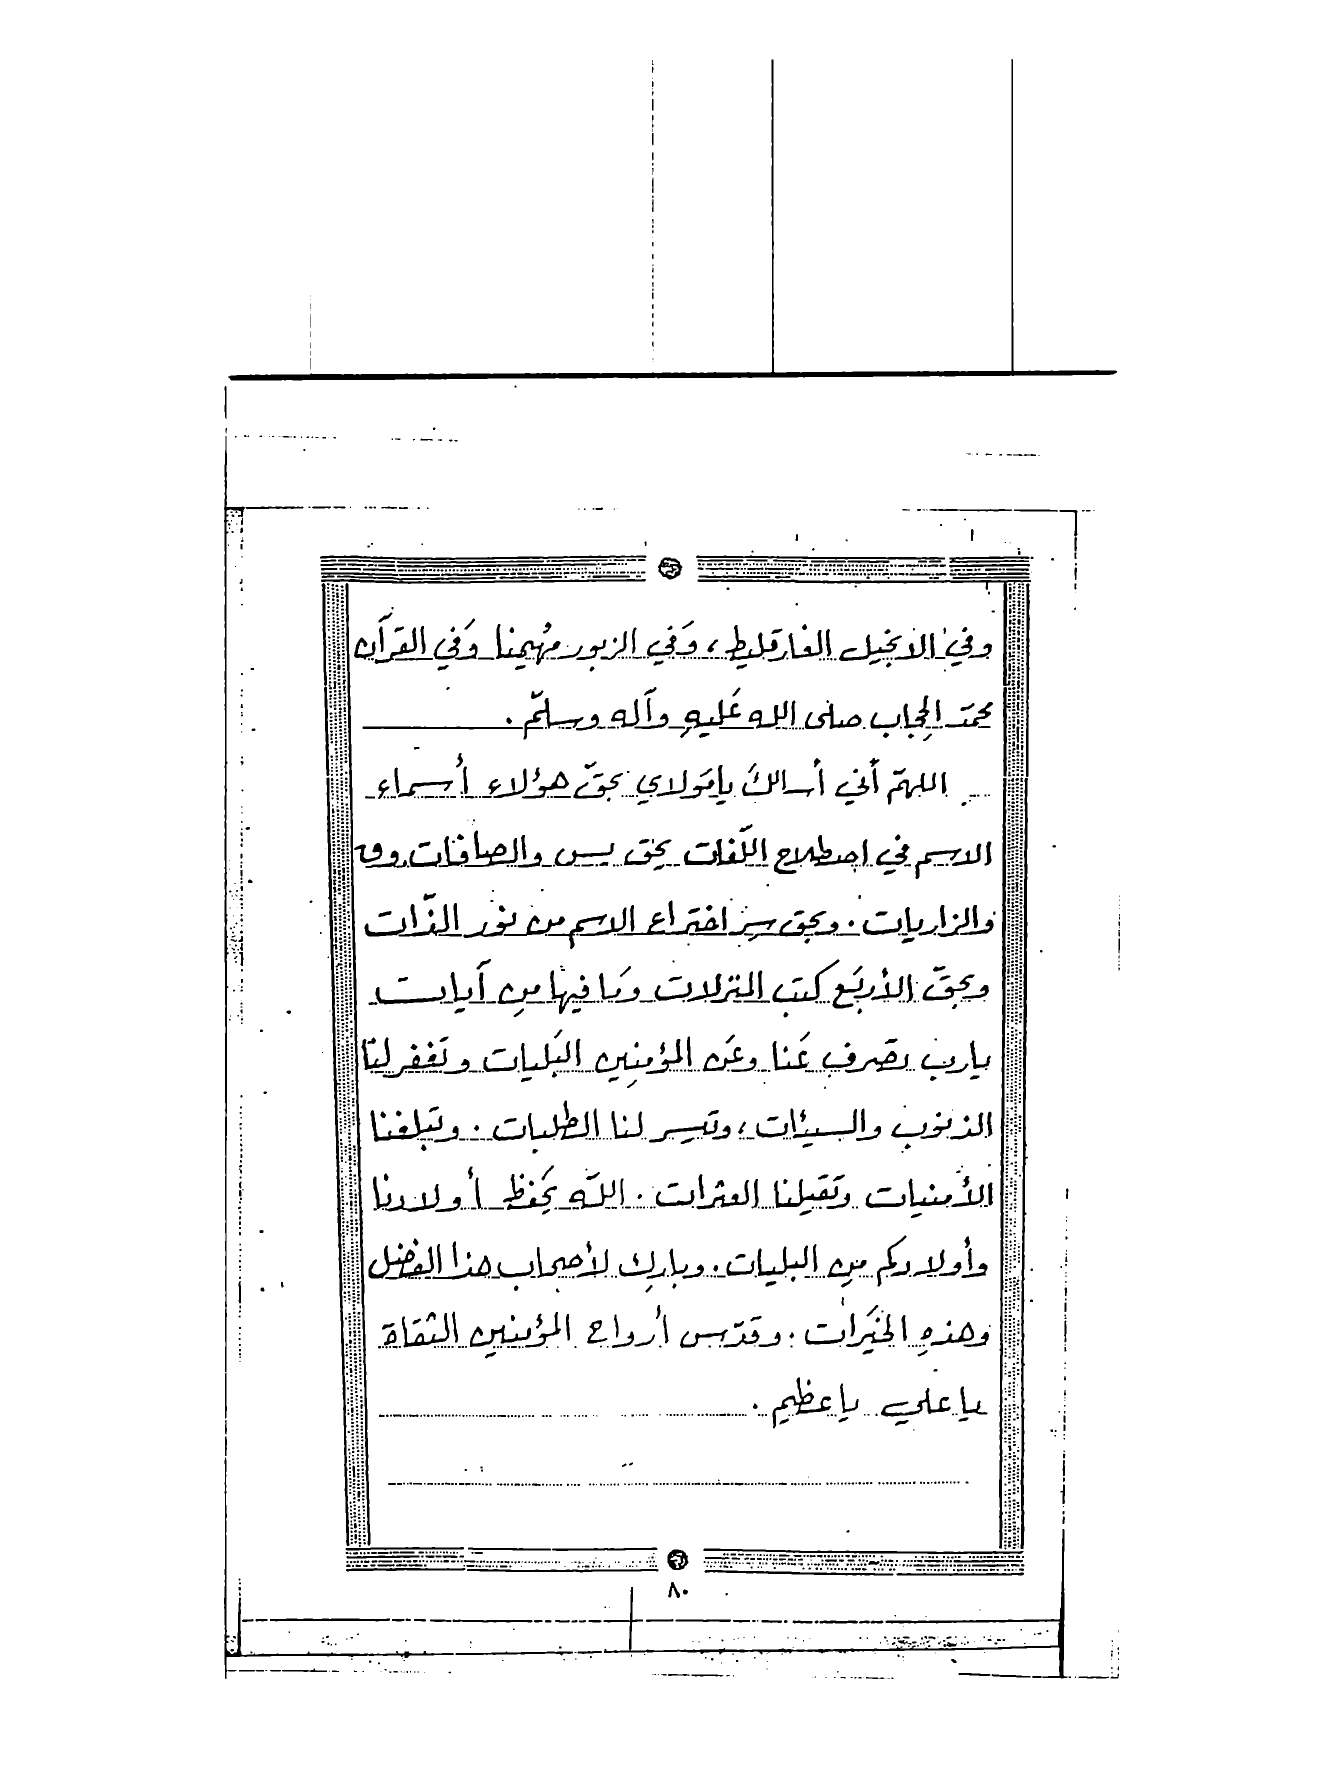 وفي الانجيل الفارقليط، وَفي الزبور مُهيمنا وَفي القرآن
محمدَ الحِجاب صلى الله عَليهِ وآله وسلّم.
اللهمّ أني أسالكَ يامَولاي بحقّ هؤلاء أسماء
الاسم في اصطلاح اللّغات بحق يس والصافات وق
والزاريات. وبحق سِر اختراع الاسم من نور الذّات
وبحقّ الأربَع كتب المنزلات ومَا فيها مِن آيات
يارب تصَرف عَنا وعَن المؤمنِين البَليات وتَغفر لنَا
الذنوب والسيئات، وتَيسر لنا الطلبات. وتبَلغنا
الأمنيات وتَقيلنا العثرات. اللّه يحَفظ أولادنا
وأولادكم مِن البليات. وبارك لأصحاب هذا الفضل
وهذهِ الخيَرات. وقَدّس أرواح المؤمنين الثقاة
ياعلي ياعظيم.
٨٠